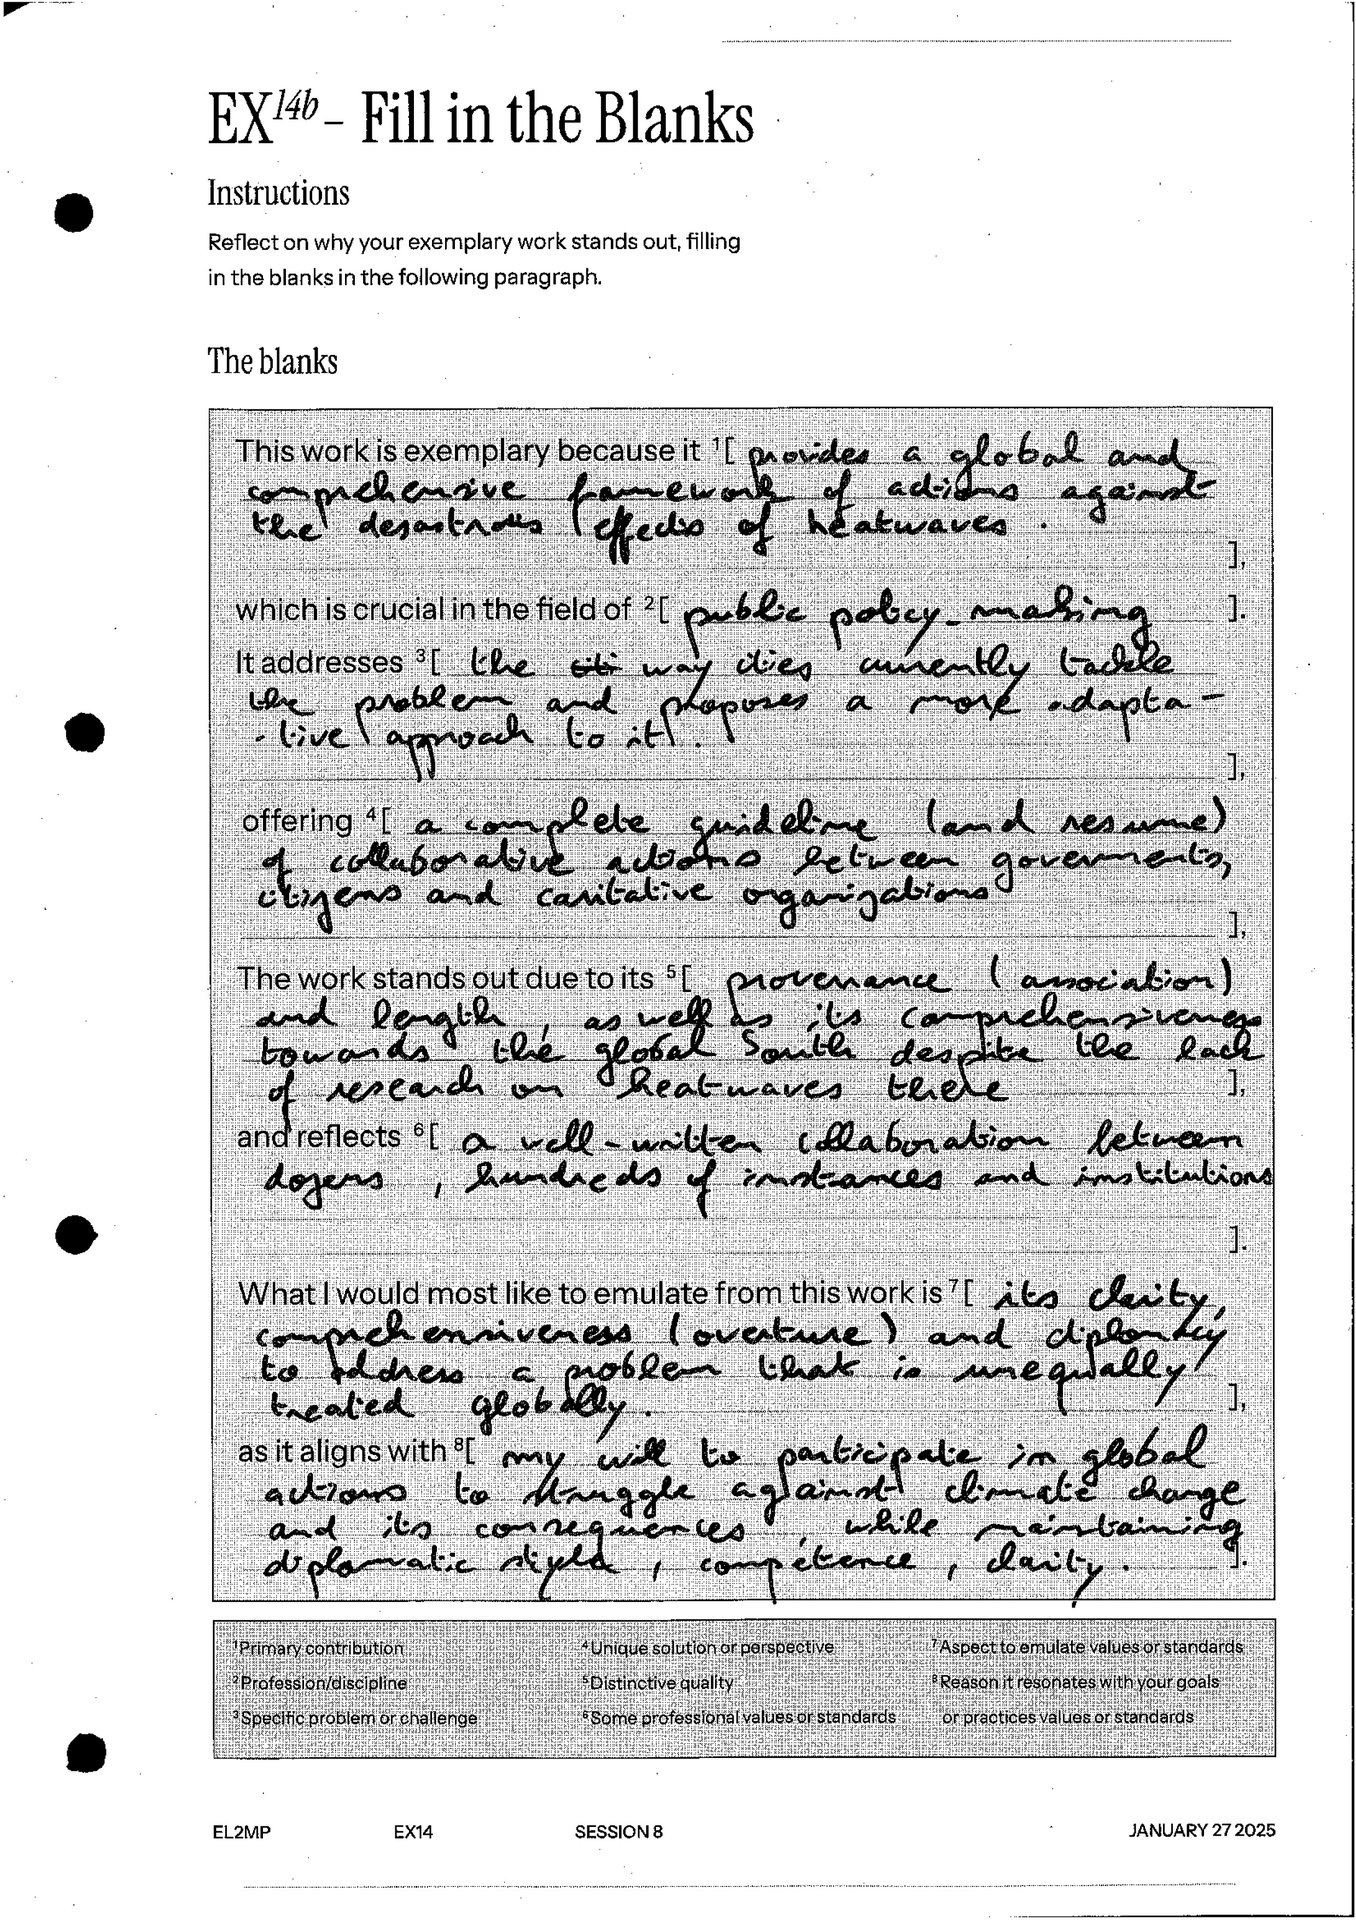 EX14b – Fill in the Blanks
Instructions
Reflect on why your exemplary work stands out, filling
in the blanks in the following paragraph.
The blanks
This work is exemplary because it 1[ provides a global and
comprehensive framework of actions against
the desastrous effects of heatwaves .
],
which is crucial in the field of 2[ public policy-making ].
It addresses 3[ the citi way cities currently tackle
the problem and proposes a more adapta-
-tive approach to it .
],
offering 4[ a complete guideline (and resume)
of collaborative actions between goverments,
citizens and caritative organizations
],
The work stands out due to its 5[ provenance (association)
and length, as well as its comprehensiveness
towards the global South despite the lack
of research on heatwaves there ],
and reflects 6[ a well-written collaboration between
dozens, hundreds of instances and institutions
].
What I would most like to emulate from this work is 7[ its clarity,
comprehensiveness (overture) and diplomacy
to address a problem that is unequally
treated globally. ],
as it aligns with 8[ my will to participate in global
actions to struggle against climate change
and its consequences, while maintaining
diplomatic style, compétence, clarity. ].
1Primary contribution
2Profession/discipline
3Specific problem or challenge
4Unique solution or perspective
5Distinctive quality
6Some professional values or standards
7Aspect to emulate values or standards
8Reason it resonates with your goals
or practices values or standards
EL2MP EX14 SESSION 8 JANUARY 27 2025